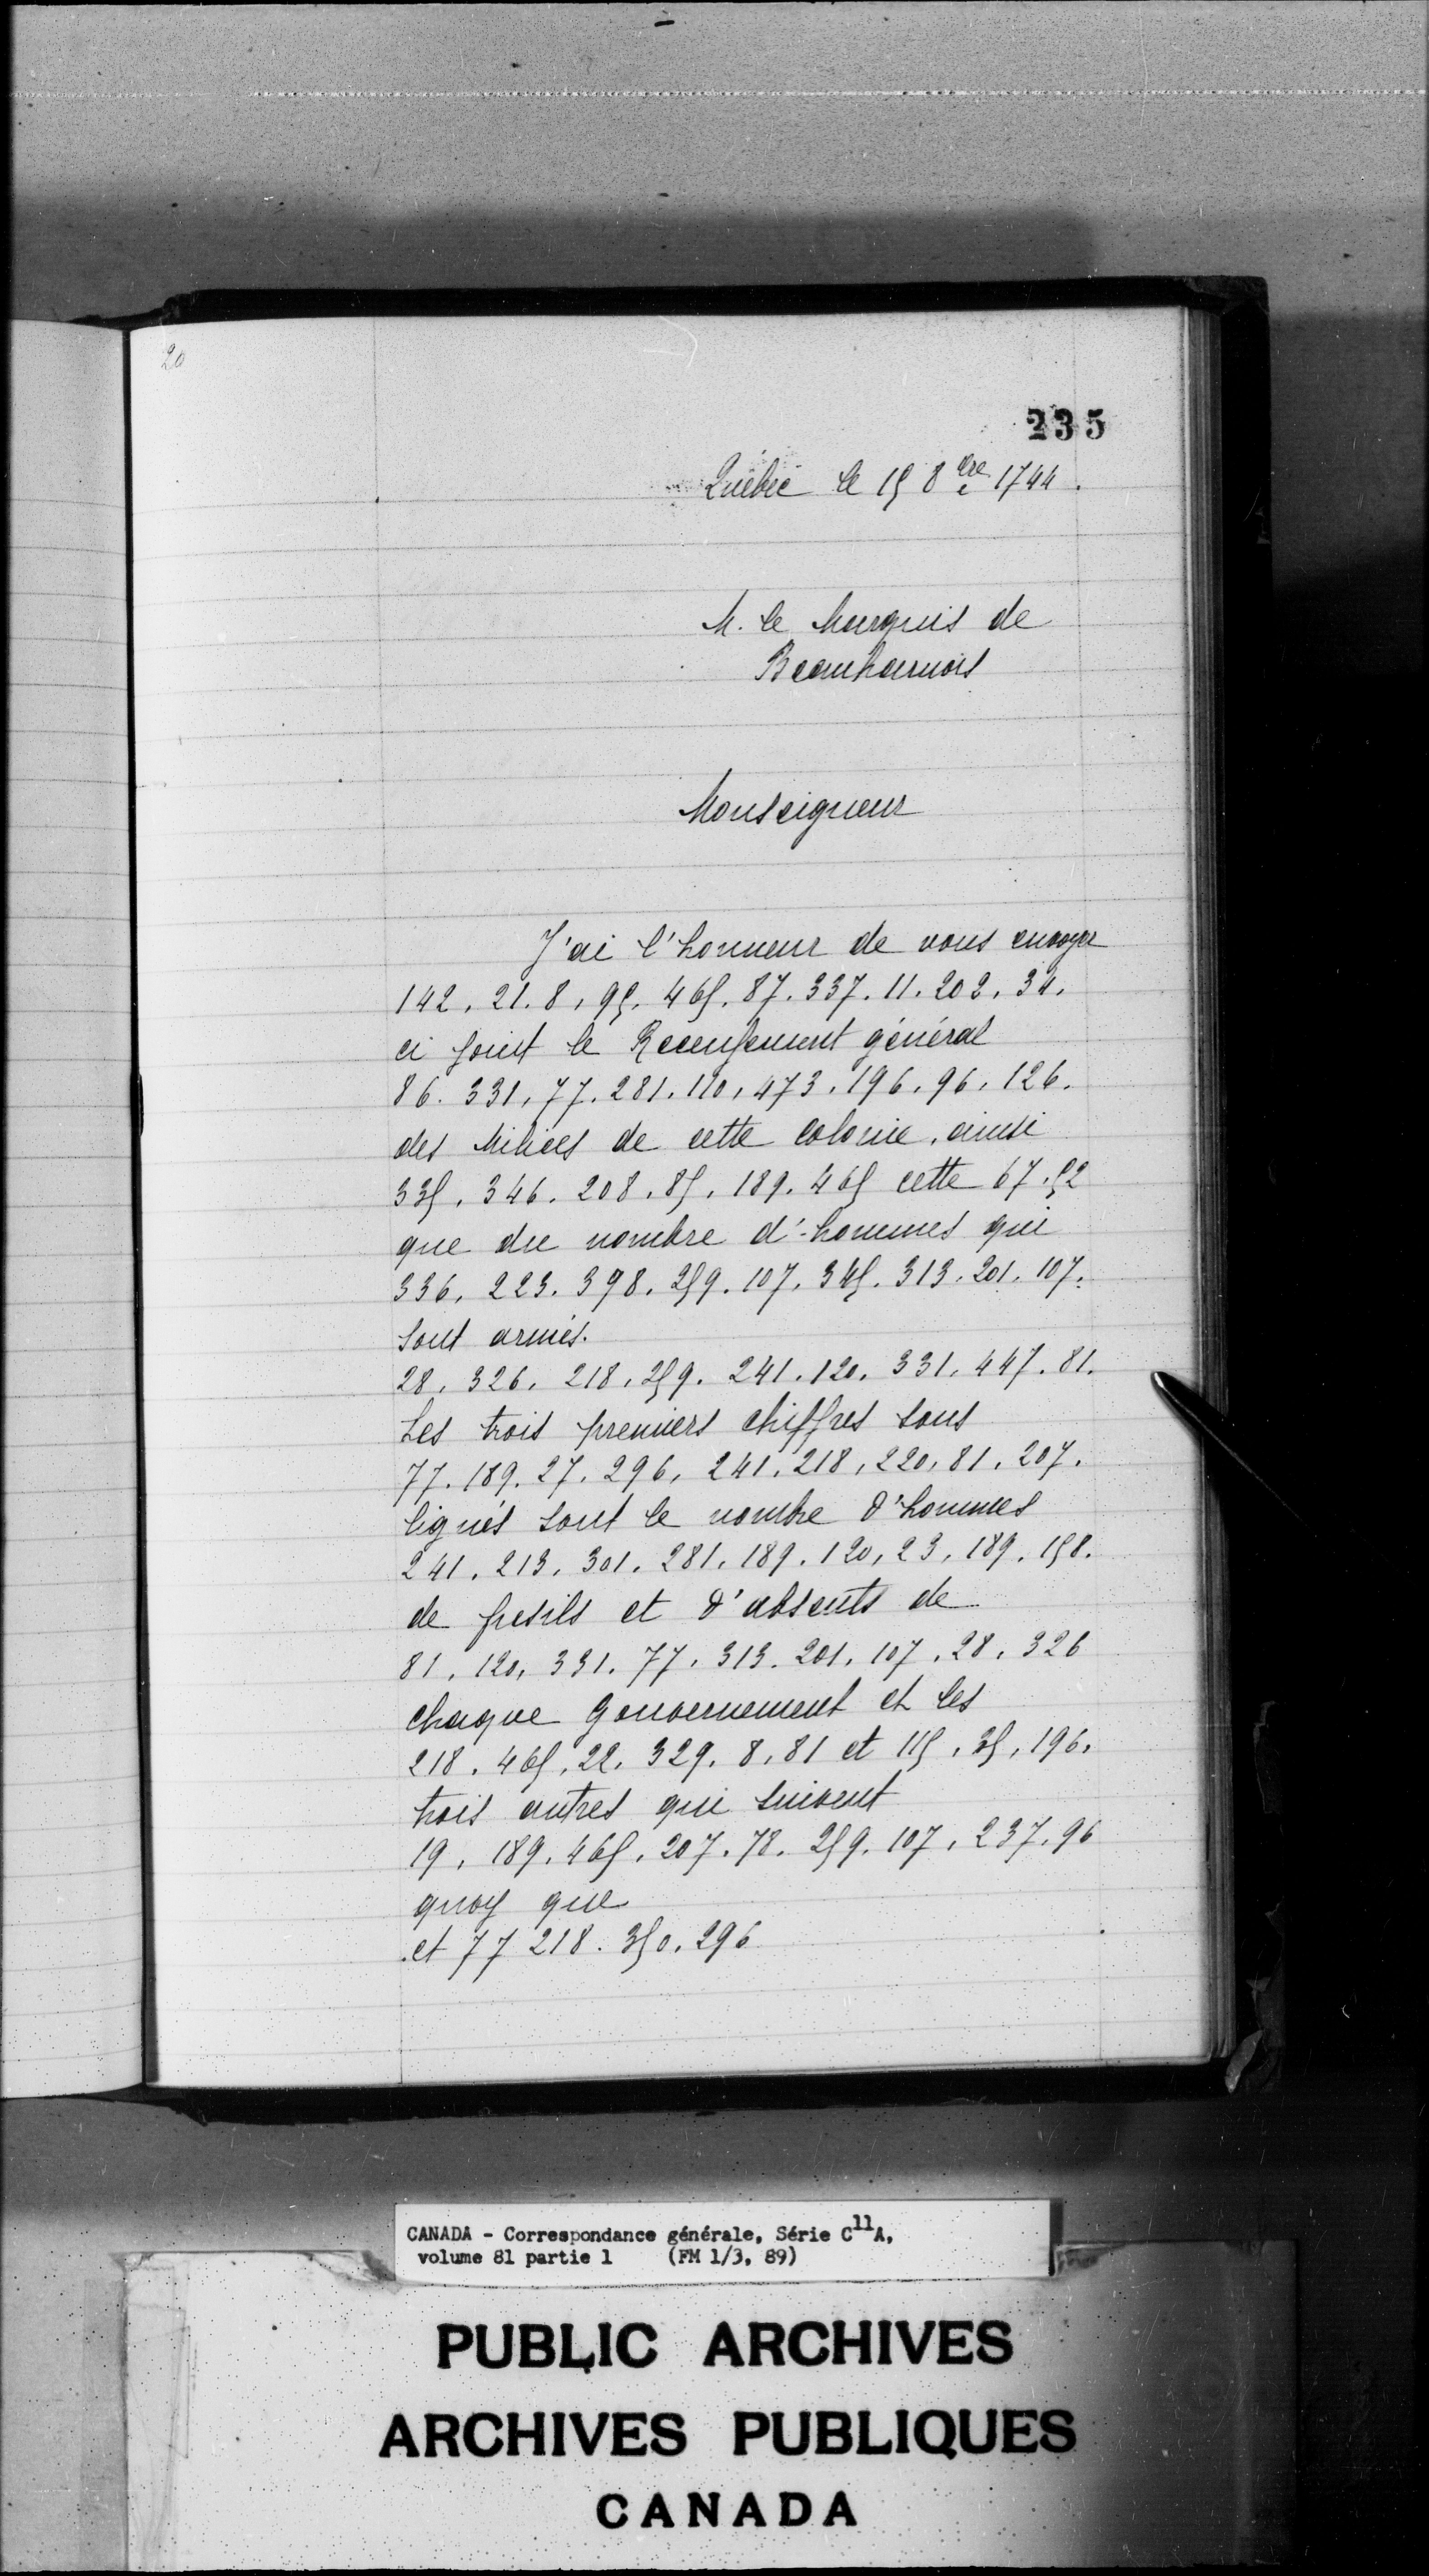 20
235
Québec le 15 8bre 1744.
M. le Marquis de
Beauharnois
Monseigneur
J'ai l'honneur de vous envoyer
142. 21. 8. 95. 465. 87. 337. 11. 202. 34.
ci joint le Recensement général
86. 331. 77. 281. 110. 473. 196. 96. 126.
des Milices de cette colonie, ainsi
335. 346. 208. 85. 189. 465 cette 67. 52
que du nombre d'hommes qui
336. 223. 398. 259. 107. 345. 313. 201. 107.
sont armés.
28. 326. 218. 259. 241. 120. 331. 447. 81.
Les trois premiers chiffres sous
77. 189. 27. 296. 241. 218. 220. 81. 207.
lignés sont le nombre d'hommes
241. 213. 301. 281. 189. 120. 23. 189. 158.
de fusils et d'absents de
81. 120. 331. 77. 313. 201. 107. 28. 326
chaque Gouvernement et les
218. 465. 22. 329. 8. 81 et 115. 35. 196.
trois autres qui suivent
19. 189. 465. 207. 78. 259. 107. 237. 96
quoy que
et 77 218. 350. 296
CANADA - Correspondance générale, Série C11A,
volume 81 partie 1 (FM 1/3, 89)
PUBLIC ARCHIVES
ARCHIVES PUBLIQUES
CANADA